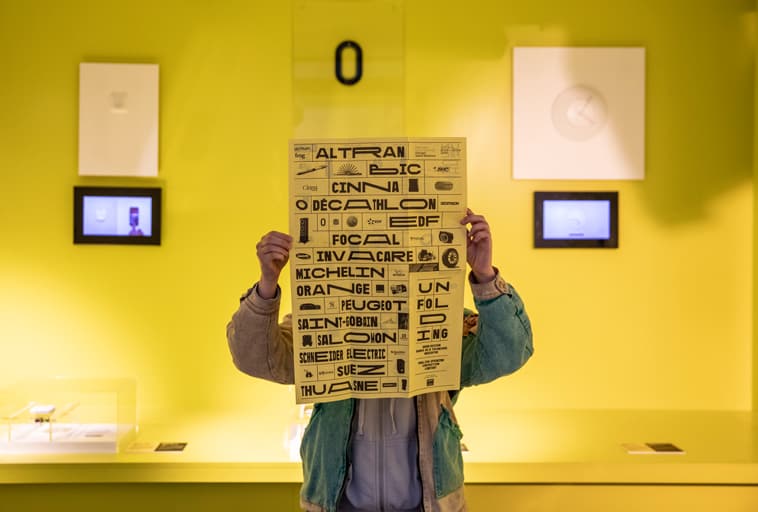 0
ALTRAN
BIC
CINNA
DÉCATHLON
EDF
FOCAL
INVACARE
MICHELIN
ORANGE
PEUGEOT
SAINT-GOBAIN
SALOMON
SCHNEIDER ELECTRIC
SUEZ
THUASNE
UN
FOL
D
ING